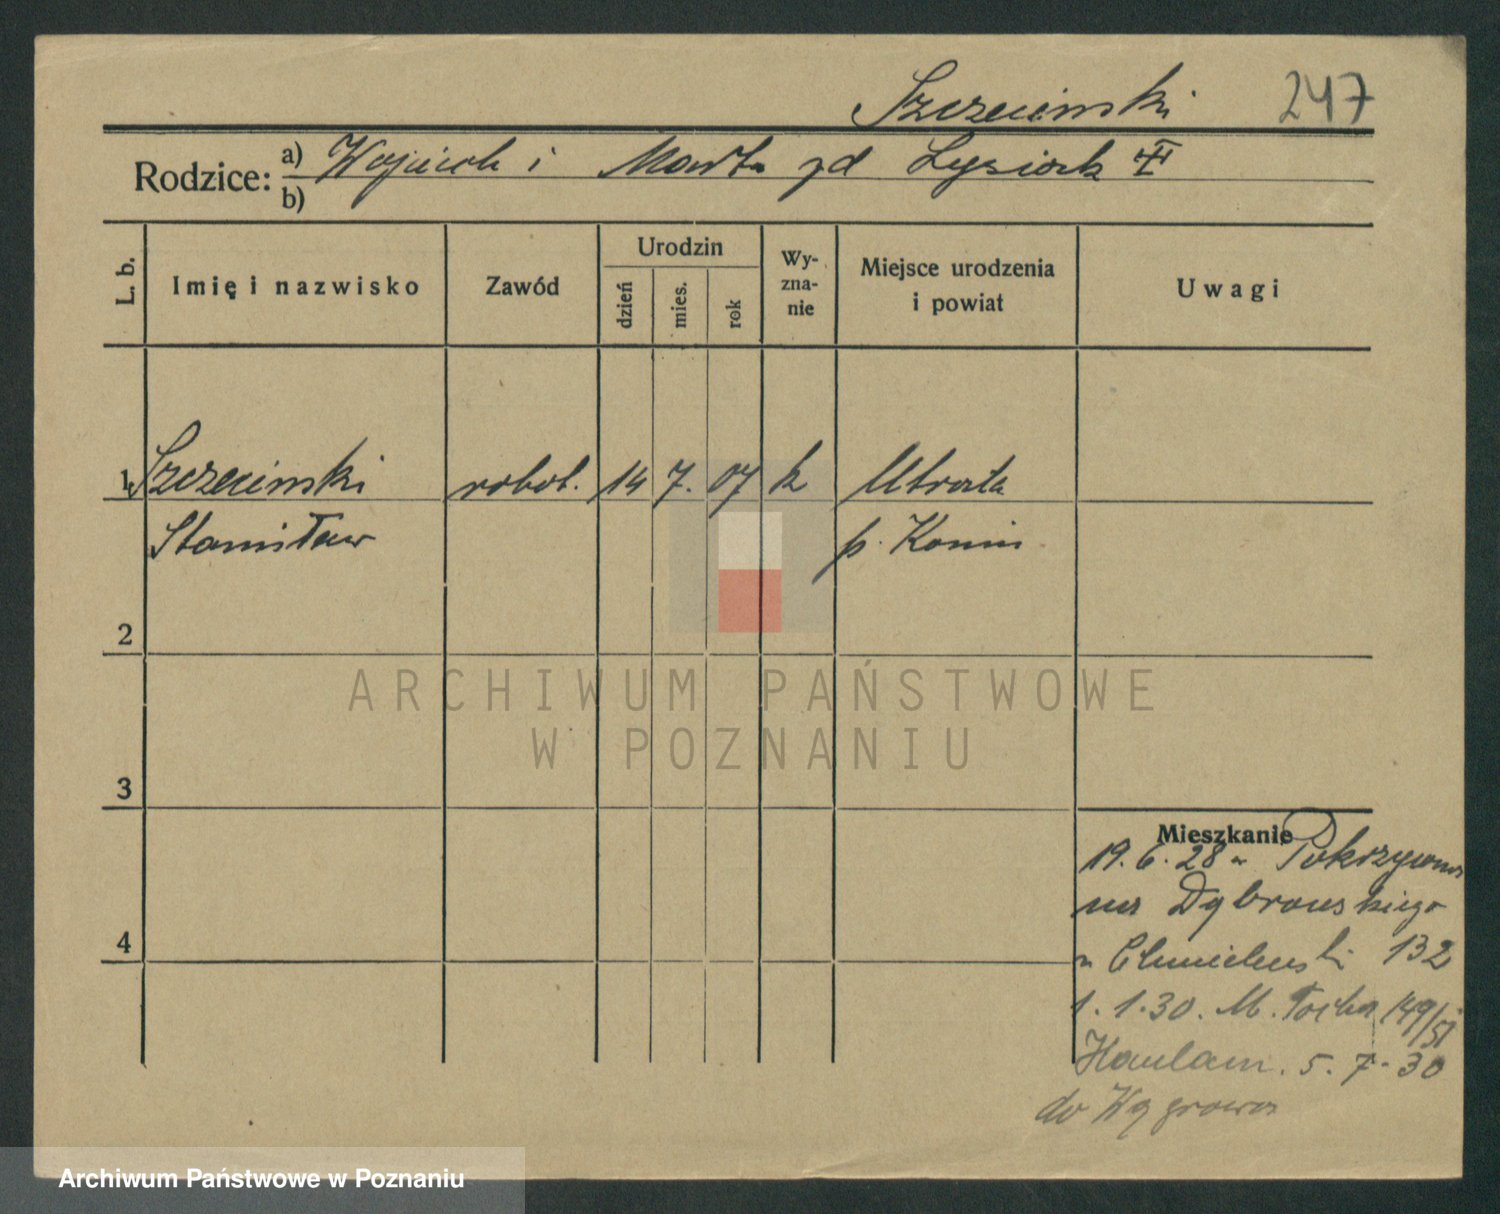 Szczecinski 247
Rodzice: a) Wojciech i Marta zd Łysiak
b)
L. b. Imię i nazwisko Zawód Urodzin dzień mies. rok Wy-zna-nie Miejsce urodzenia i powiat Uwagi
1 Szczecinski robot. 14 7. 07 k
Stanisław p. Konin
2
3
4
Mieszkanie
19.6.28 z Pokrzywna
na Dąbrowskiego
u Chmielewski 132
1.1.30. M. 149/51
5.7.30
do Wągrowa
ARCHIWUM PAŃSTWOWE
W POZNANIU
Archiwum Państwowe w Poznaniu